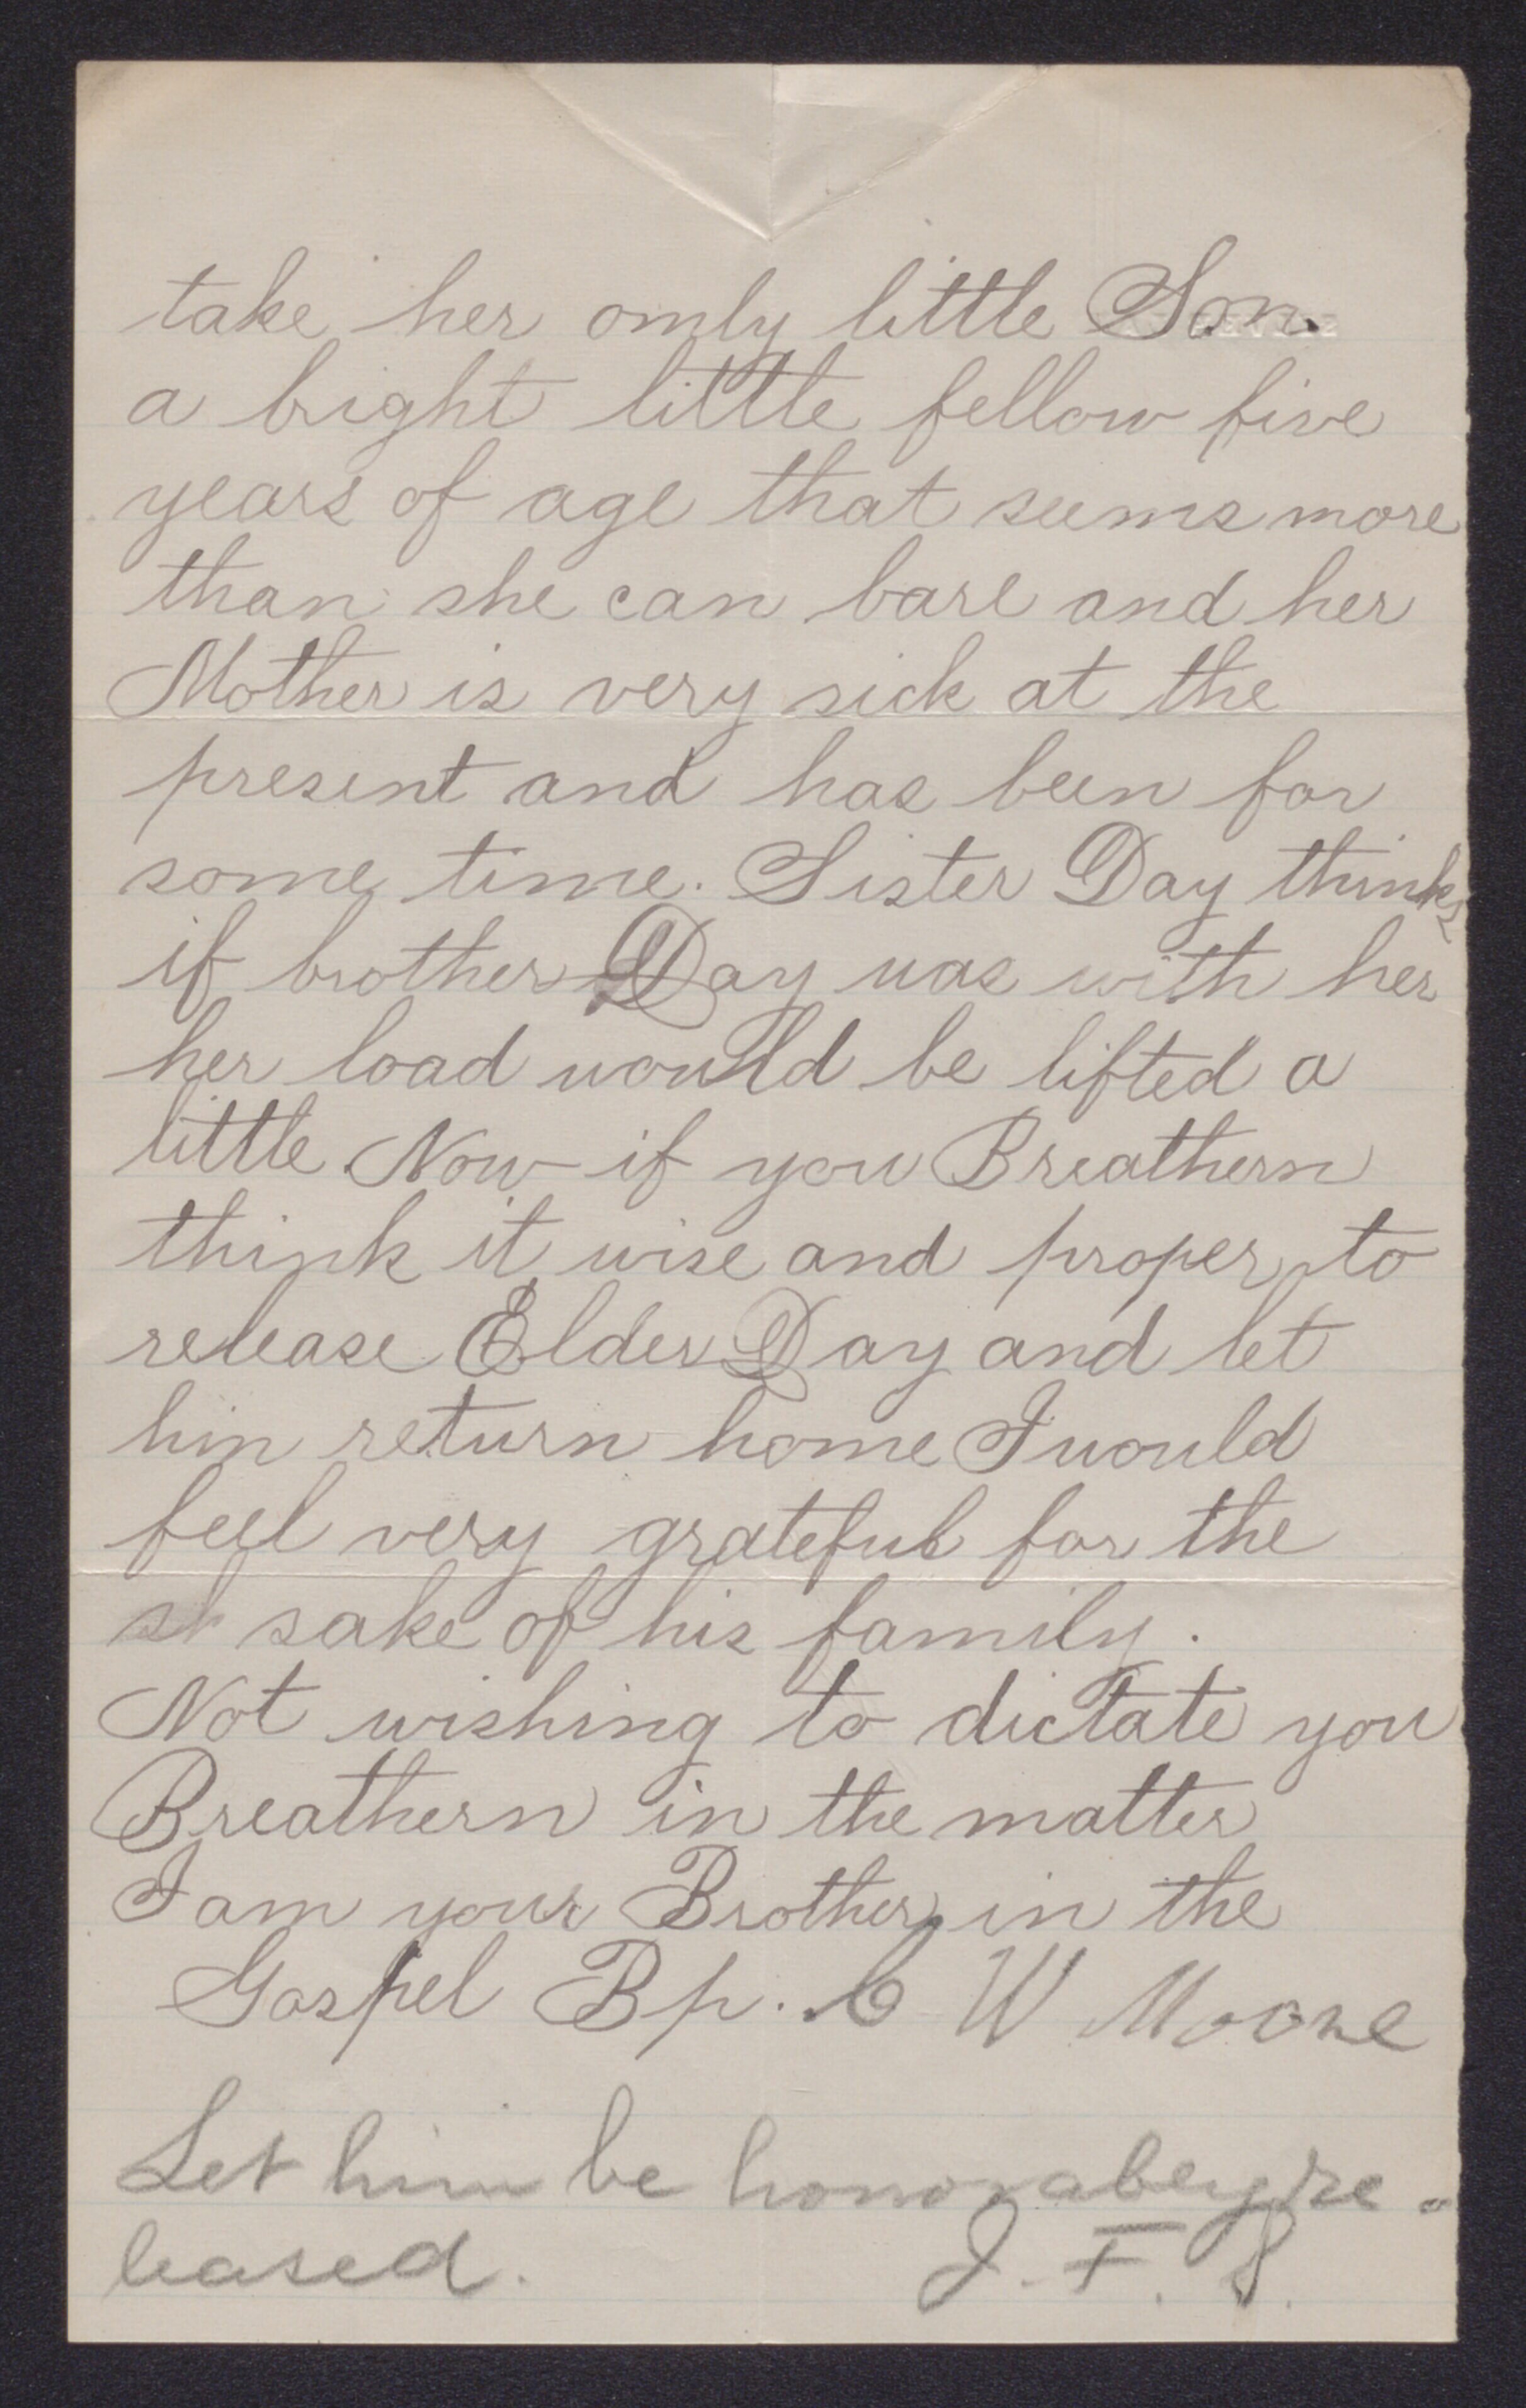 take her only little Son.
a bright little fellow five
years of age that seems more
than she can bare and her
Mother is very sick at the
present and has been for
some time. Sister Day thinks
if brother Day was with her
her load would be lifted a
little Now if you Breathern
think it wise and proper to
release Elder Day and let
him return home I would
feel very grateful for the
sake of his family.
Not wishing to dictate you
Breathern in the matter
I am your Brother in the
Gospel Bp. C W Moore
Let him be honorabley re-
leased. J. F. S.